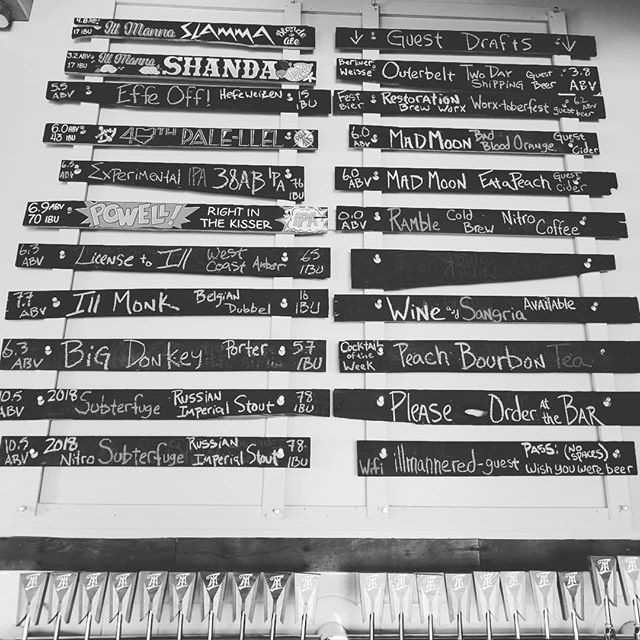 4.8 ABV
17 IBU
Ill Manna SLAMMA blonde ale
3.2 ABV
17 IBU
Ill Manna SHANDA
5.5 ABV
Effe Off! Hefeweizen
15 IBU
6.0 ABV
43 IBU
40TH PALE-LLEL
ABV
Experimental IPA 38AB IPA
76 IBU
6.9 ABV
70 IBU
POWELL! RIGHT IN THE KISSER IPA
6.3 ABV
License to Ill West Coast Amber
65 IBU
7.7 ABV
Ill Monk Belgian Dubbel
16 IBU
6.3 ABV
Big Donkey Porter
57 IBU
10.5 ABV
2018 Subterfuge Russian Imperial Stout
78 IBU
10.5 ABV
2018 Nitro Subterfuge Russian Imperial Stout
78 IBU
Guest Drafts
Berliner Weisse
Outerbelt Two Day Shipping Guest Beer
3.8 ABV
Fest Bier
Restoration Brew Worx Worx-toberfest guest beer
6.2 ABV
6.0 ABV
Mad Moon Bad Blood Orange Guest Cider
6.0 ABV
Mad Moon Eat a Peach Guest Cider
0.0 ABV
Ramble Cold Brew Nitro Coffee
Wine and Sangria Available
Cocktail of the Week
Peach Bourbon Tea
Please - Order at the BAR
Wifi illmannered-guest PASS: (NO SPACES) Wish you were beer